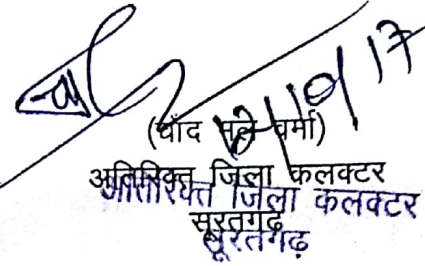 12/10/17
(चाँद मल वर्मा)
अतिरिक्त जिला कलक्टर
अतिरिक्त जिला कलक्टर
सूरतगढ़
सूरतगढ़